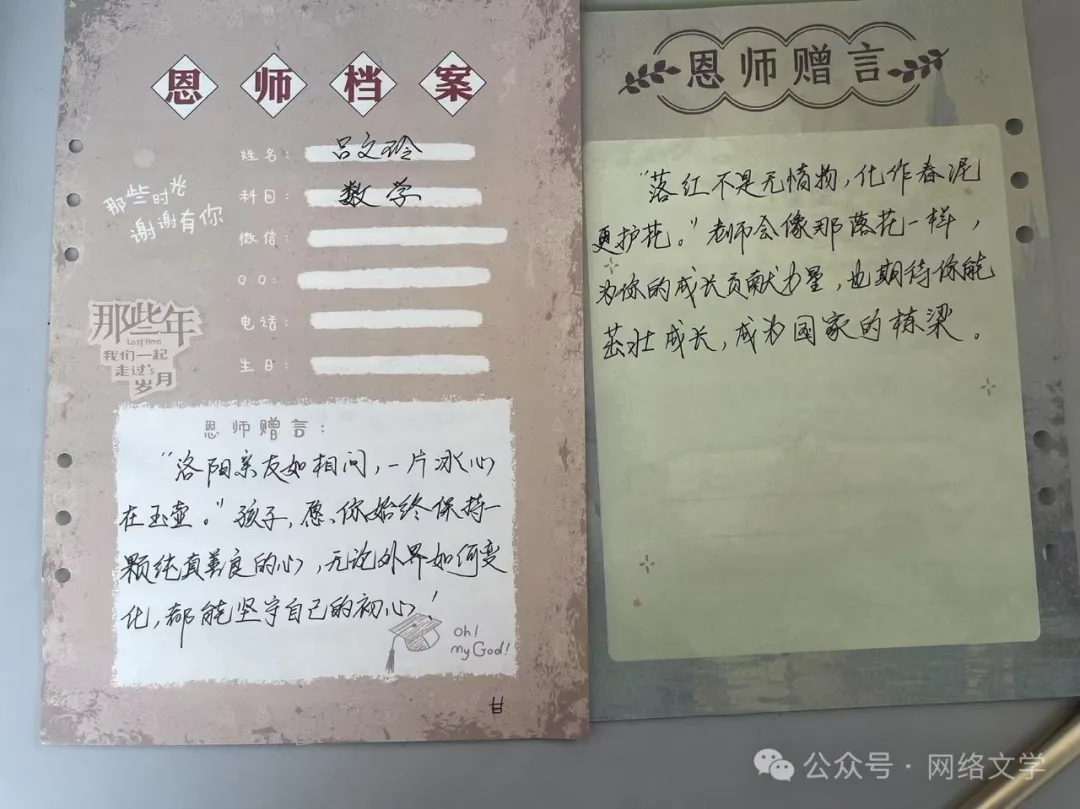 恩师档案
姓名：吕文玲
科目：数学
微信：
QQ：
电话：
生日：
那些时光
谢谢有你
那些年
Lost time
我们一起
走过
岁月
恩师赠言：
“洛阳亲友如相问，一片冰心
在玉壶。”孩子，愿你始终保持一
颗纯真善良的心，无论外界如何变
化，都能坚守自己的初心！
oh!
my God!
月
恩师赠言
“落红不是无情物，化作春泥
更护花。”老师会像那落花一样，
为你的成长贡献力量，也期待你能
茁壮成长，成为国家的栋梁。
公众号·网络文学